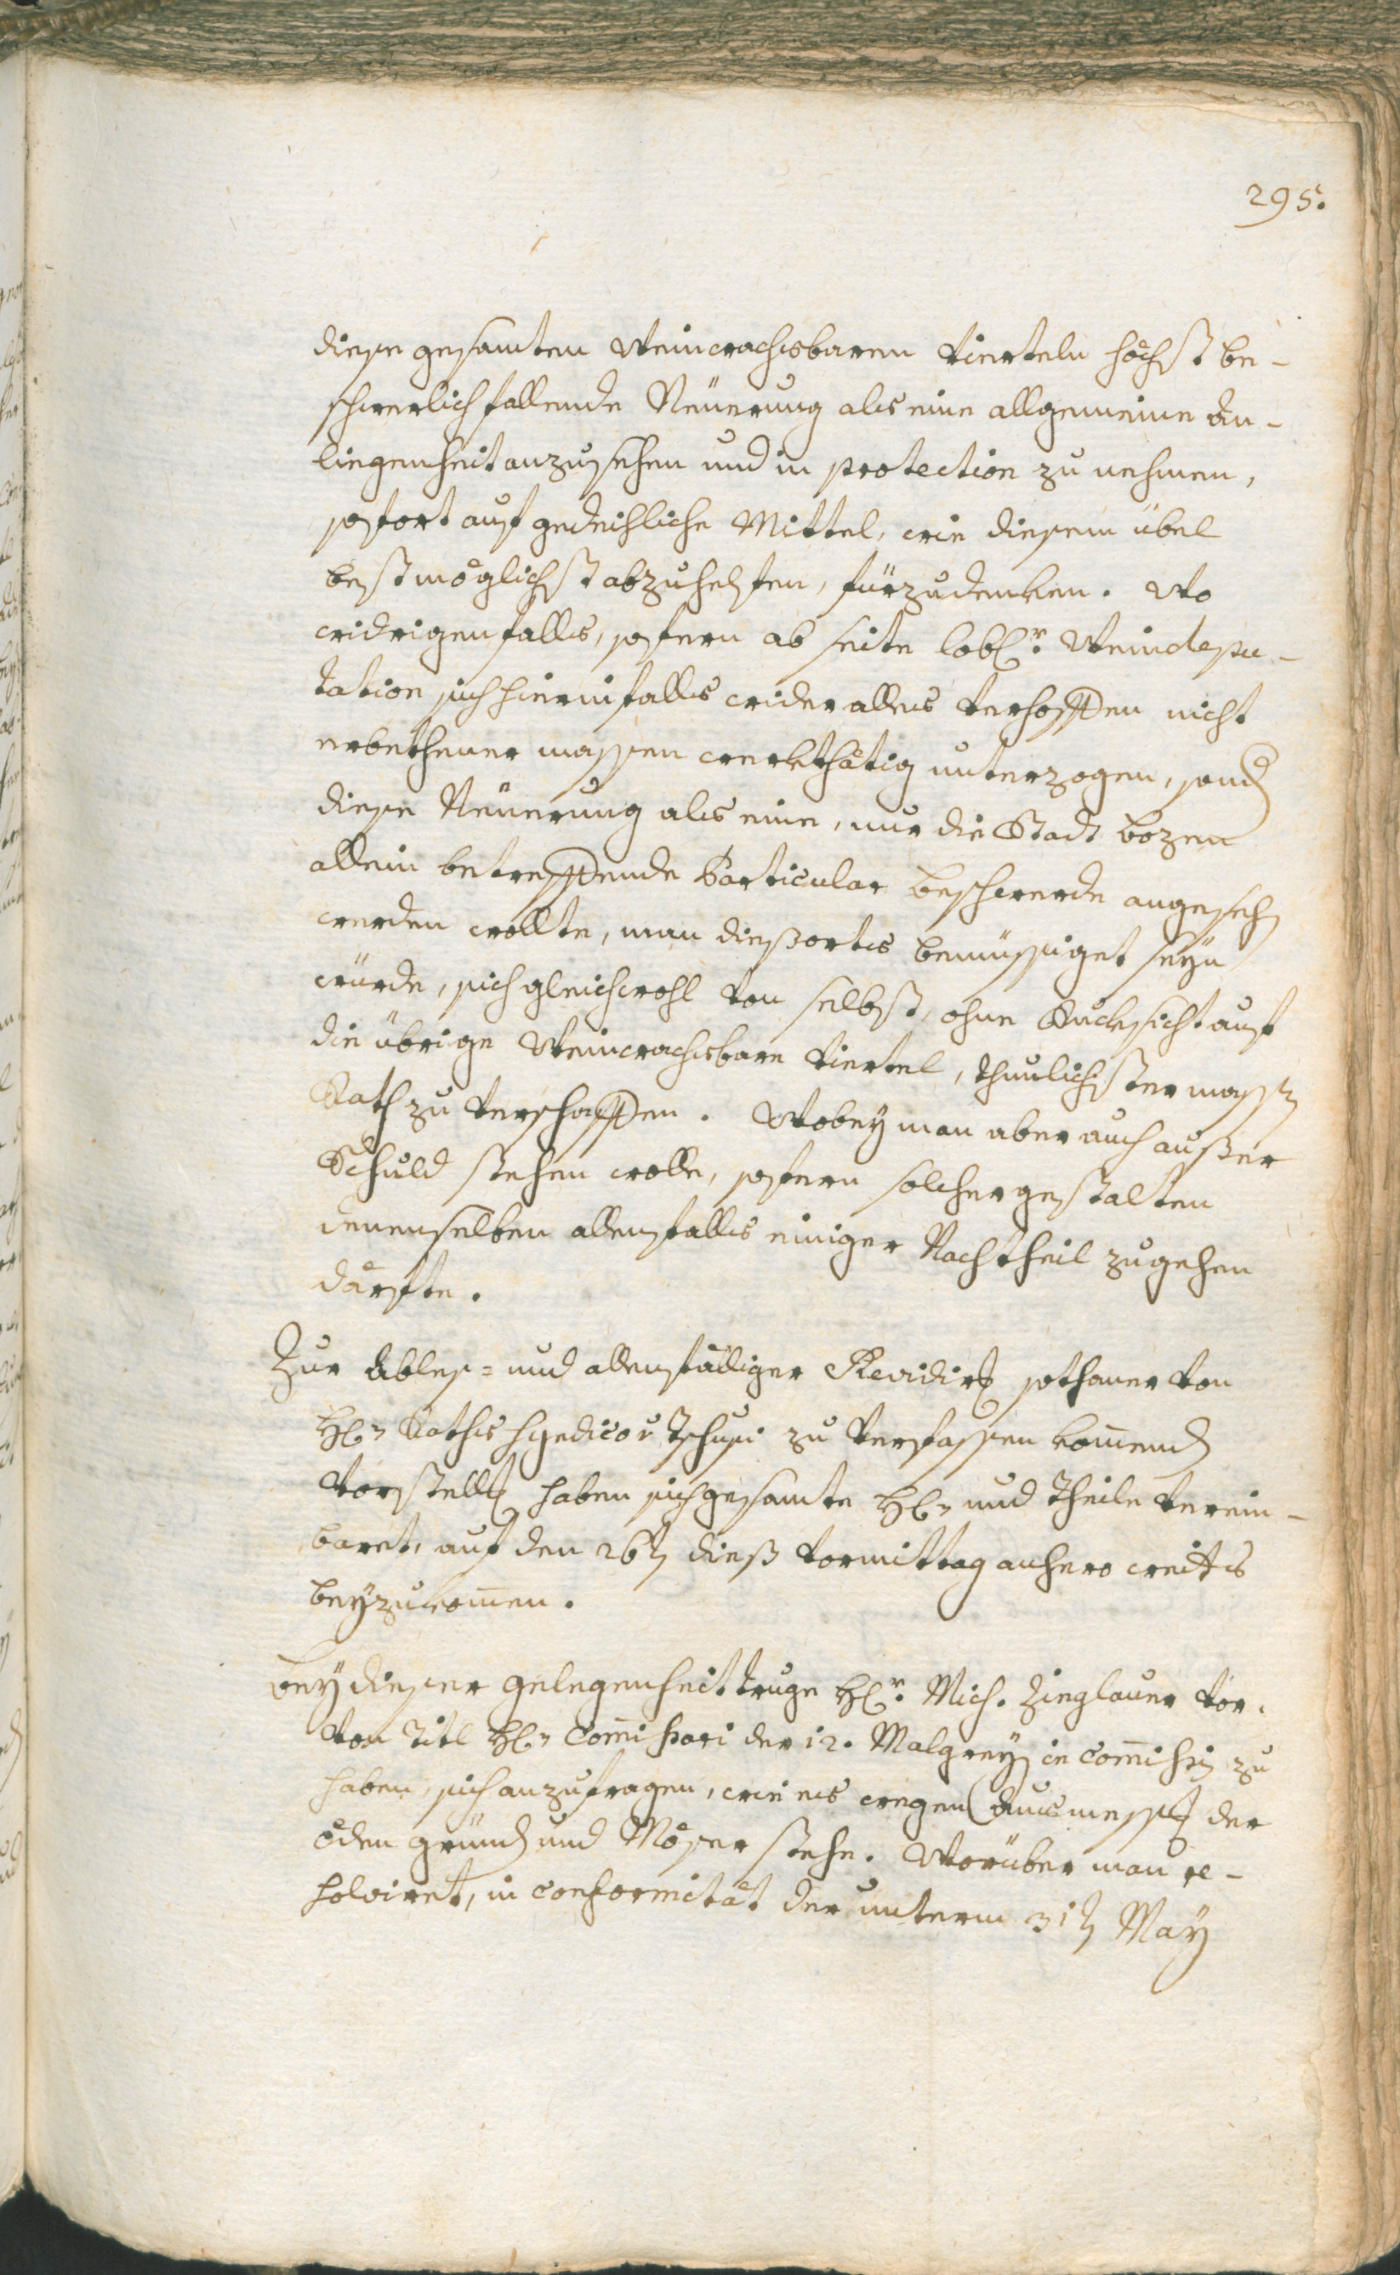 295.
diese gesamten Weinwachsbaren Vierteln höchst be-
schwerlich fallende Neüerung als eine allgemeine An-
liegenheit anzusehen und in protection zu nehmen,
sofort auf gedeihliche Mittel, wie diesem übel
bestmöglichst abzuhelfen, fürzudenken. Wo
widrigenfalls, sofern ab seite lobl:r Weindepu-
tation sich hierinfalls wider alles Verhoffen nicht
erbethener massen werkthätig unterzogen, sond
diese Neüerung als eine, nur die Stadt Bozen
allein betreffende Particular beschwerde angeseh
werden wollte, man dießorts bemüssiget seÿn
würde, sich gleichwohl von selbst, ohne Rucksicht auf
die übrige Weinwachsbare Viertel, thunlichster mass
Rath zu verschaffen. Wobeÿ man aber auch außer
Schuld stehen wolle, sofern solcher gestalten
denenselben allenfalls einiger Nachtheil zugehen
därfte.
Zur Ables= und allenfälliger Revidir sothaner von
H: Raths Syndico v Tschusi zu verfassen komend
Vorstell haben sich gesamte H: und Theile verein-
baret, auf den 26 dieß Vormittag anhero weiters
beÿzukomen.
Beÿ dieser gelegenheit truge H:r Mich. Zieglauer vor.
Von Titl H: Commissari der 12. Malgreÿ in Commiss zu
haben, sich anzufragen, wie es wegen Ausmess der
öden gründ und Möser stehe. Worüber man re-
solviret, in conformität der unterm 31 Maÿ